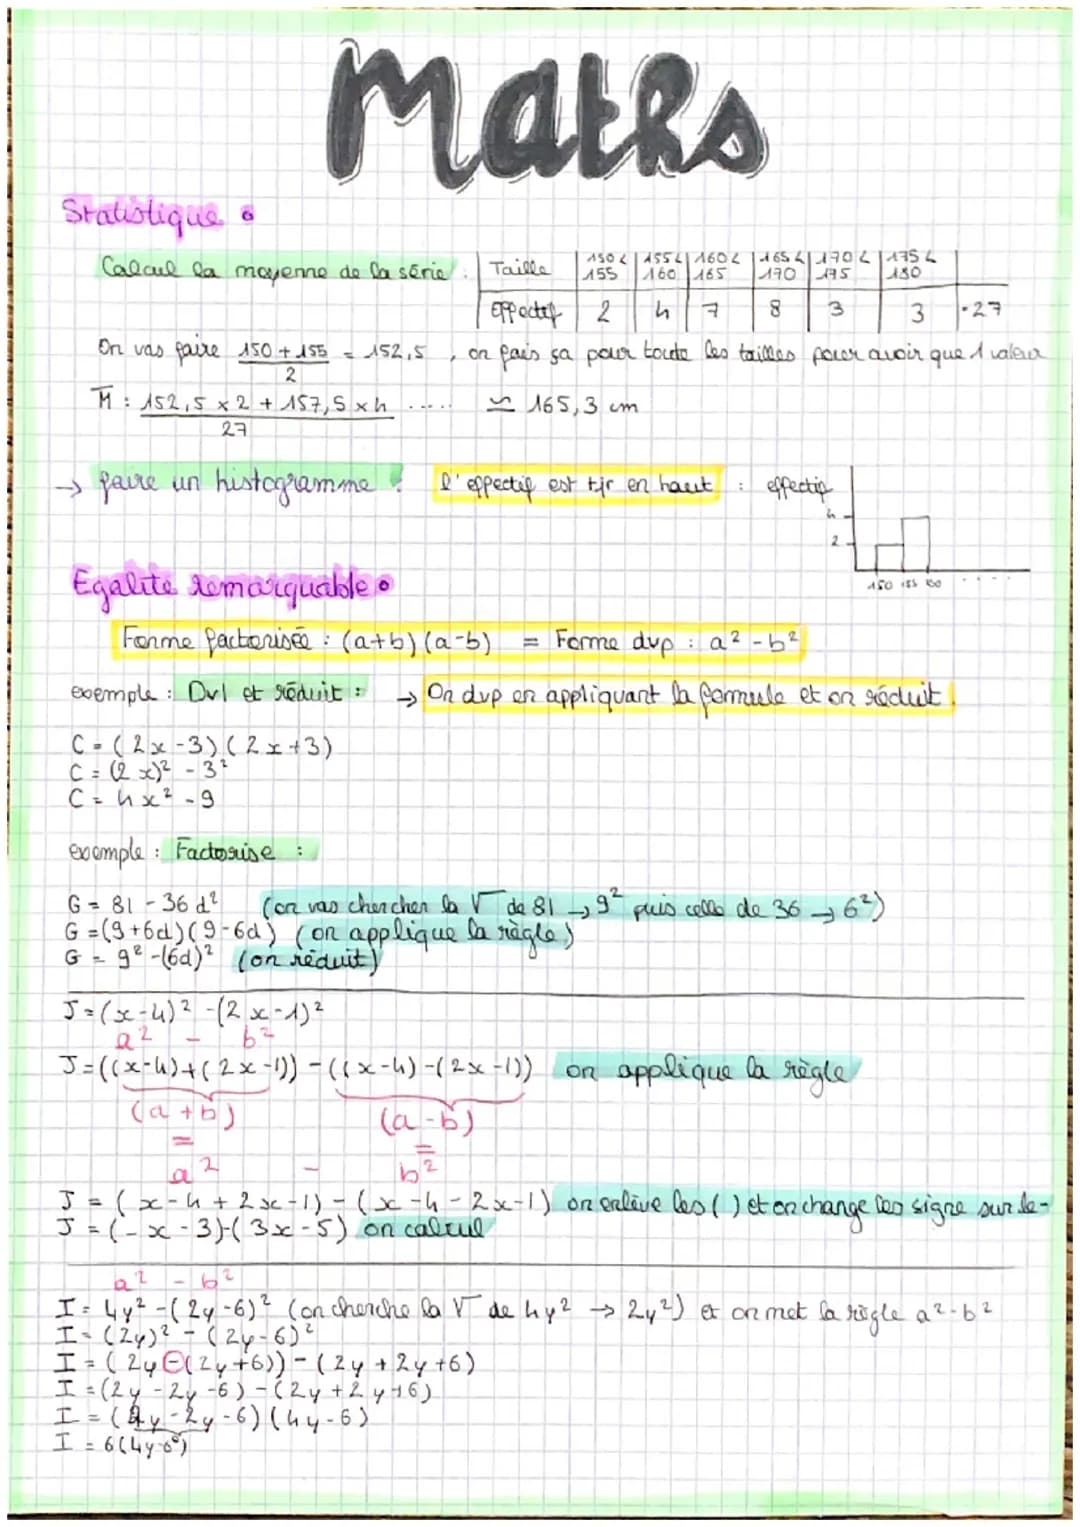 Maths
Statistique :
Calcul la moyenne de la série :
Taille | 150 < 155 | 155 < 160 | 160 < 165 | 165 < 170 | 170 < 175 | 175 < 180
Effectif | 2 | 4 | 7 | 8 | 3 | 3 | = 27
On vas faire (150 + 155)/2 = 152,5 , on fais ça pour toute les tailles pour avoir que 1 valeur
M : (152,5 x 2 + 157,5 x 4 ......)/27 ≃ 165,3 cm
→ faire un histogramme : l'effectif est tjr en haut : effectif
4
2
150 155 160 ....
Egalité remarquable :
Forme factorisée : (a+b)(a-b) = Forme dvp : a² - b²
exemple : Dvl et réduit : → On dvp en appliquant la formule et on réduit.
C = (2x-3)(2x+3)
C = (2x)² - 3²
C = 4x² - 9
exemple : Factorise :
G = 81 - 36d² (on vas chercher la √ de 81 → 9² puis celle de 36 → 6²)
G = (9+6d)(9-6d) (on applique la règle)
G = 9² -(6d)² (on réduit)
J = (x-4)² -(2x-1)²
a² - b²
J = ((x-4)+(2x-1)) - ((x-4)-(2x-1)) on applique la règle
(a+b) (a-b)
= =
a² - b²
J = (x-4+2x-1) - (x-4-2x-1) on enlève les ( ) et on change les signe sur le -
J = (-x-3)-(3x-5) on calcul
a² - b²
I = 4y² -(2y-6)² (on cherche la √ de 4y² → 2y²) et on met la règle a²-b²
I = (2y)² - (2y-6)²
I = (2y-(2y+6)) - (2y+2y+6)
I = (2y-2y-6) -(2y+2y+6)
I = (2y-2y-6)(4y-6)
I = 6(4y-6)